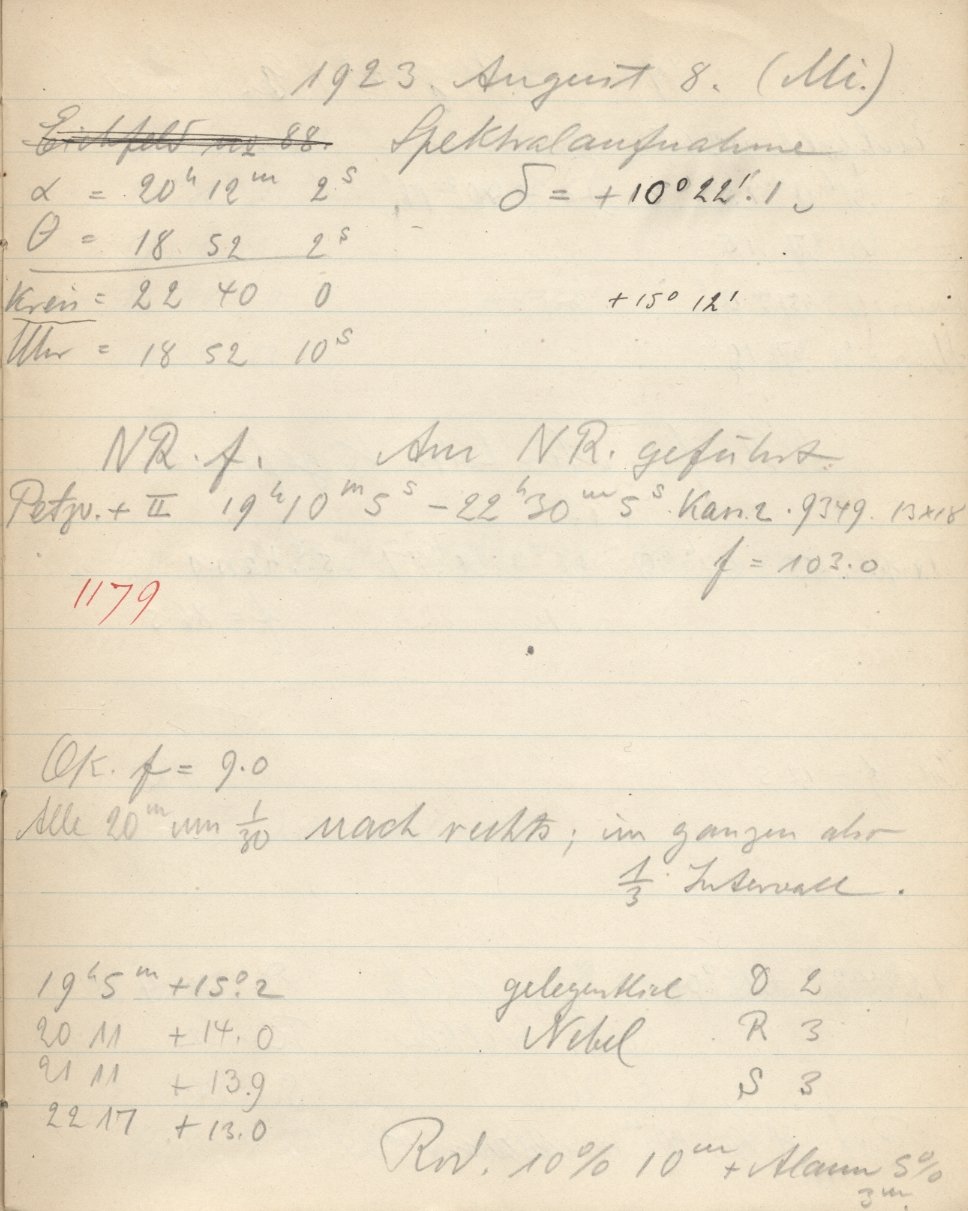 1923. August 8. (Mi.)
Eichfeld nr 88. Spektralaufnahme
α = 20ʰ 12ᵐ 2ˢ δ = +10°22'.1
θ = 18 52 2ˢ
Kreis = 22 40 0 +15° 12'
Uhr = 18 52 10ˢ
NR. f. Am NR. geführt.
Petzv. + II 19ʰ10ᵐ5ˢ – 22ʰ30ᵐ5ˢ. Kas. 2. 9349. 13×18
f = 103.0
1179
Ok. f = 9.0
Alle 20ᵐ um 1/30 nach rechts; im ganzen also
1/3 Intervall.
19ʰ5ᵐ +15°.2 gelegentlich D 2
20 11 +14.0 Nebel R 3
21 11 +13.9 S 3
22 17 +13.0
Rod. 10% 10ᵐ + Alaun 5%
3ᵐ.